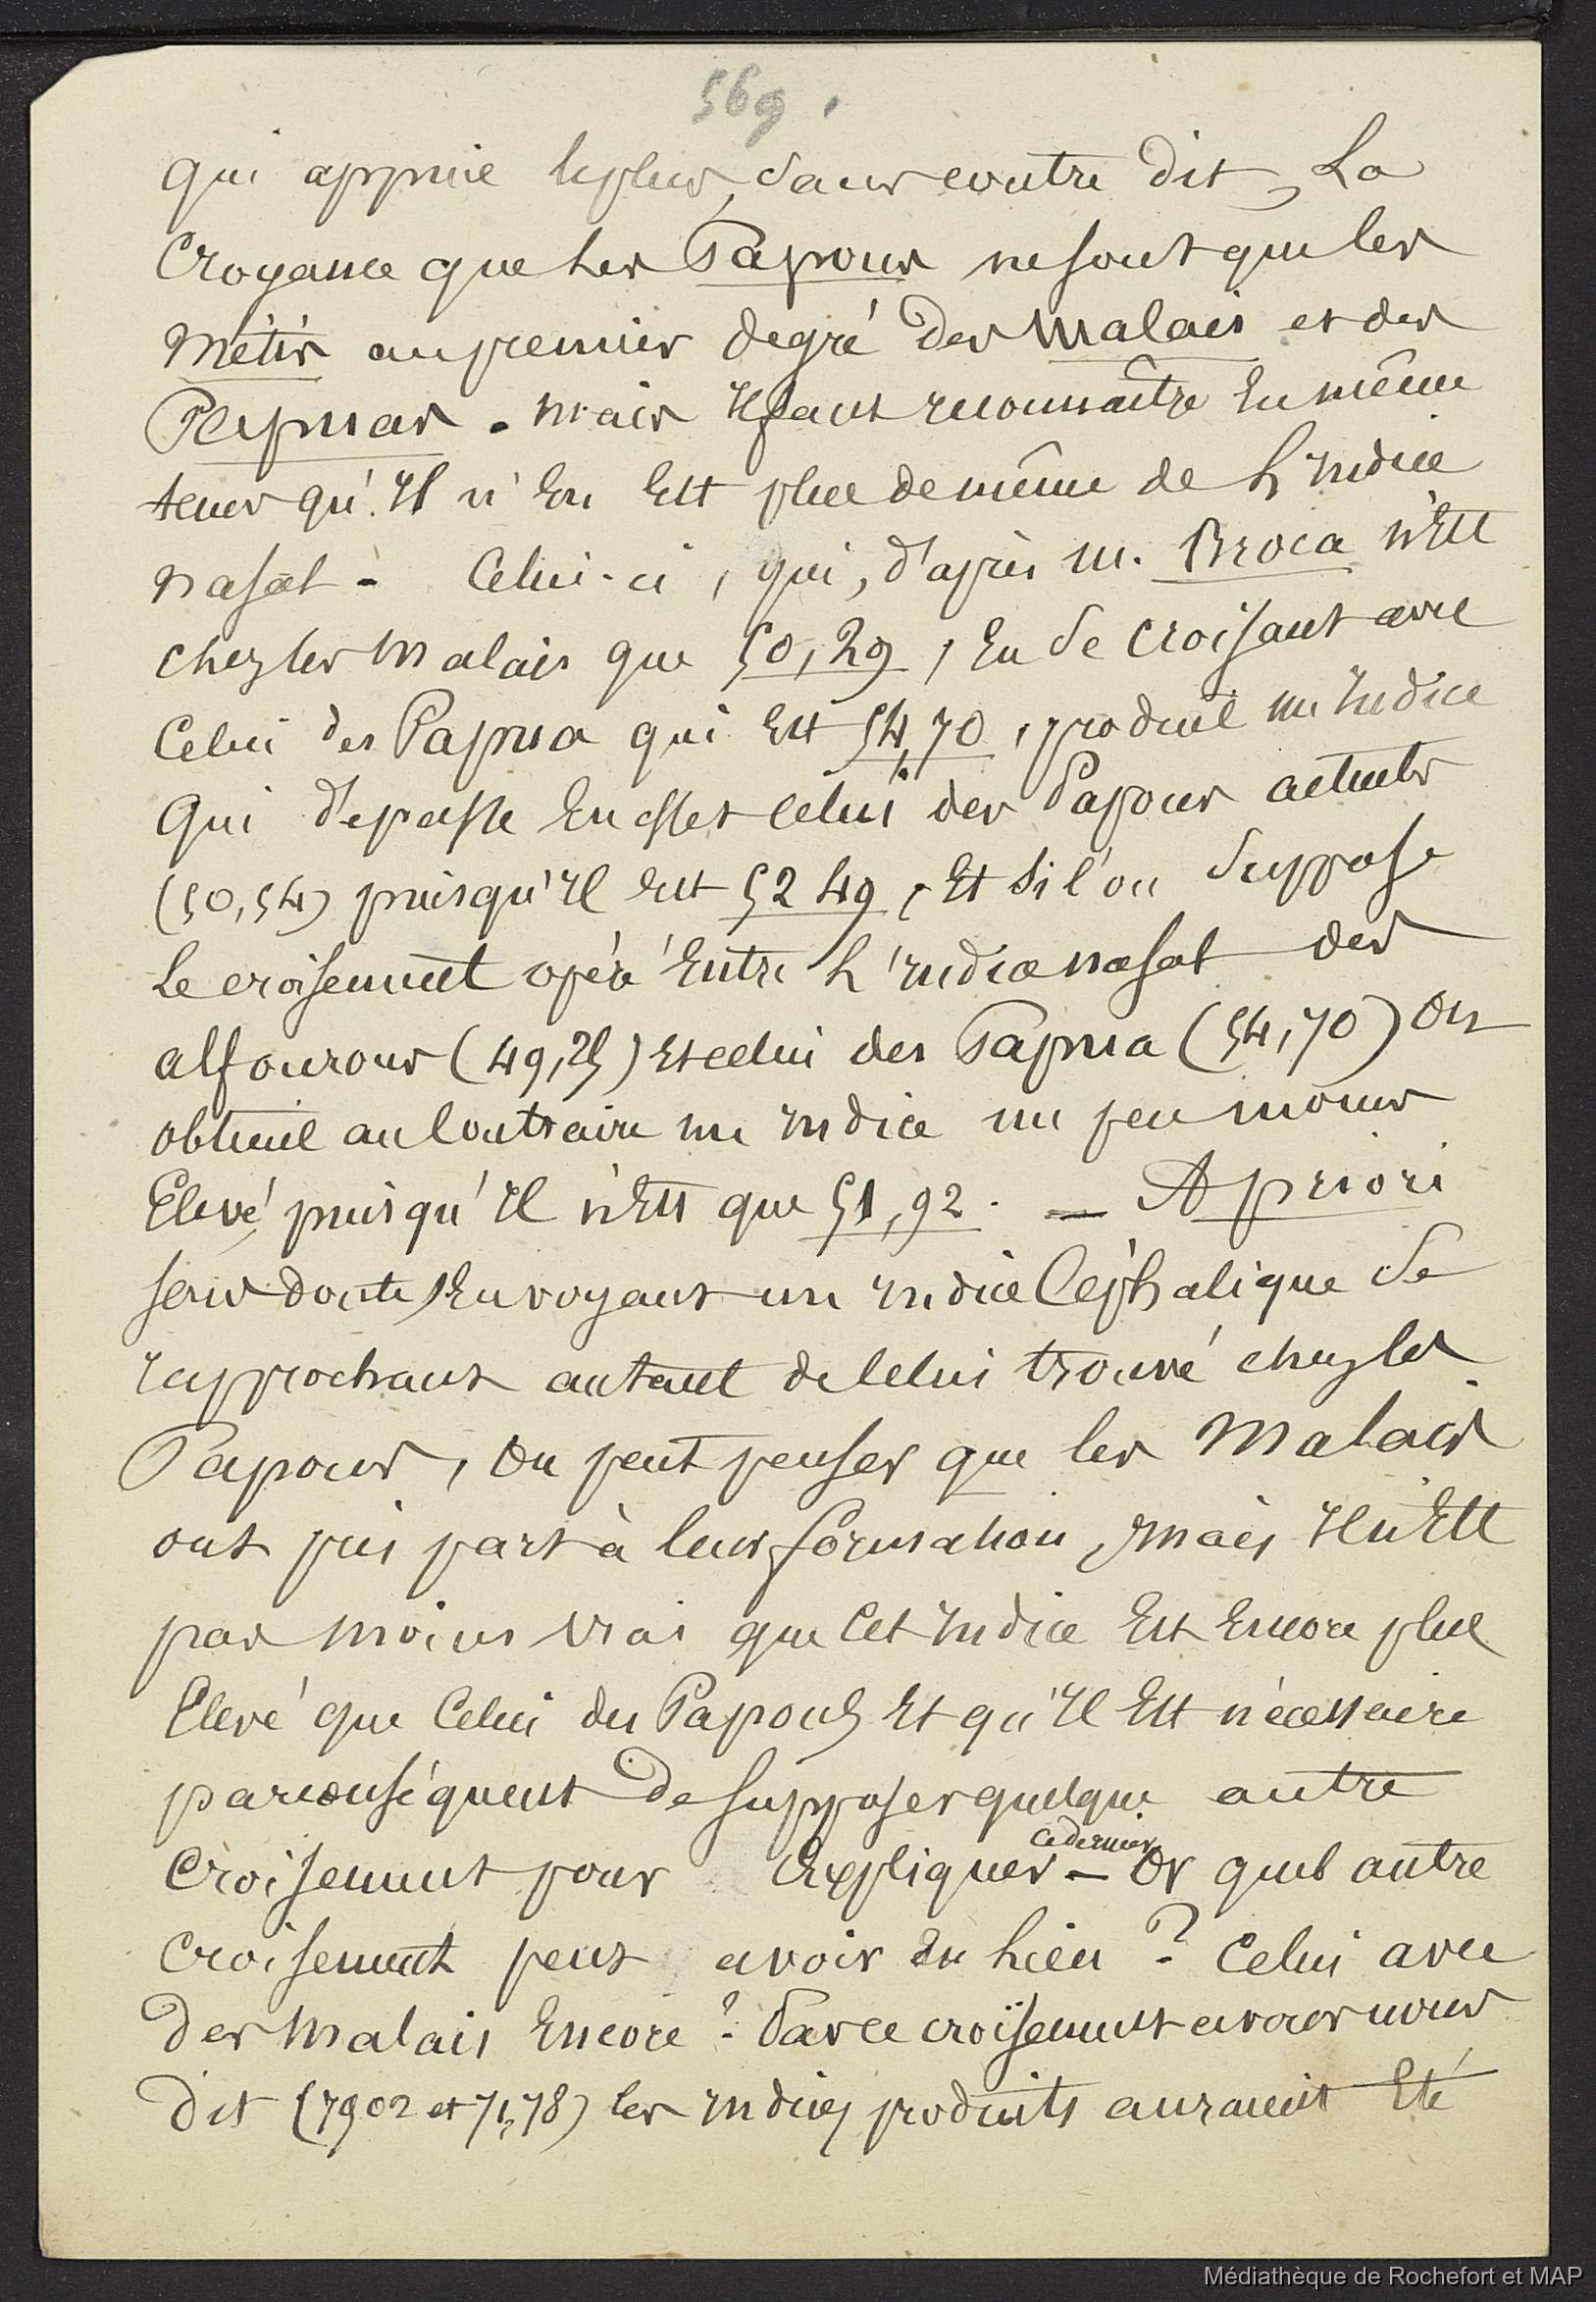 569.
qui appuie le plus, sans contre dit, La
Croyance que Les Papous ne sont que les
Métis au premier degré des Malais et des
Papuas. Mais Il faut reconnaître En même
tems qu'Il n'En Est plus de même de L'Indice
nasal - Celui-ci, qui, d'après M. Broca n'Est
chez les Malais que 50,29, En se croisant avec
Celui des Papua qui Est 54,70, produit un Indice
Qui dépasse En effet Celui des Papous actuels
(50,54) puisqu'Il Est 52 49, Et si l'on suppose
Le croisement opéré Entre L'Indice nasal des
alfourous (49,25) Et celui des Papua (54,70) On
obtient au Contraire un Indice un peu moins
Elevé, puisqu'Il n'Est que 51,92. — A priori
sans doute, En voyant un Indice Céphalique se
rapprochant autant de Celui trouvé chez les
Papous, On peut penser que les Malais
ont pris part à leur formation, mais Il n'Est
pas moins Vrai que Cet Indice Est Encore plus
Elevé que Celui des Papous Et qu'Il Est nécessaire
par conséquent de supposer quelque autre
Croisement pour Expliquer ce dernier — Or quel autre
Croisement peut avoir Eu Lieu ? Celui avec
Des Malais Encore ? Par ce croisement avons nous
Dit (7902 et 71,78) les Indices produits auraient Eté
Médiathèque de Rochefort et MAP